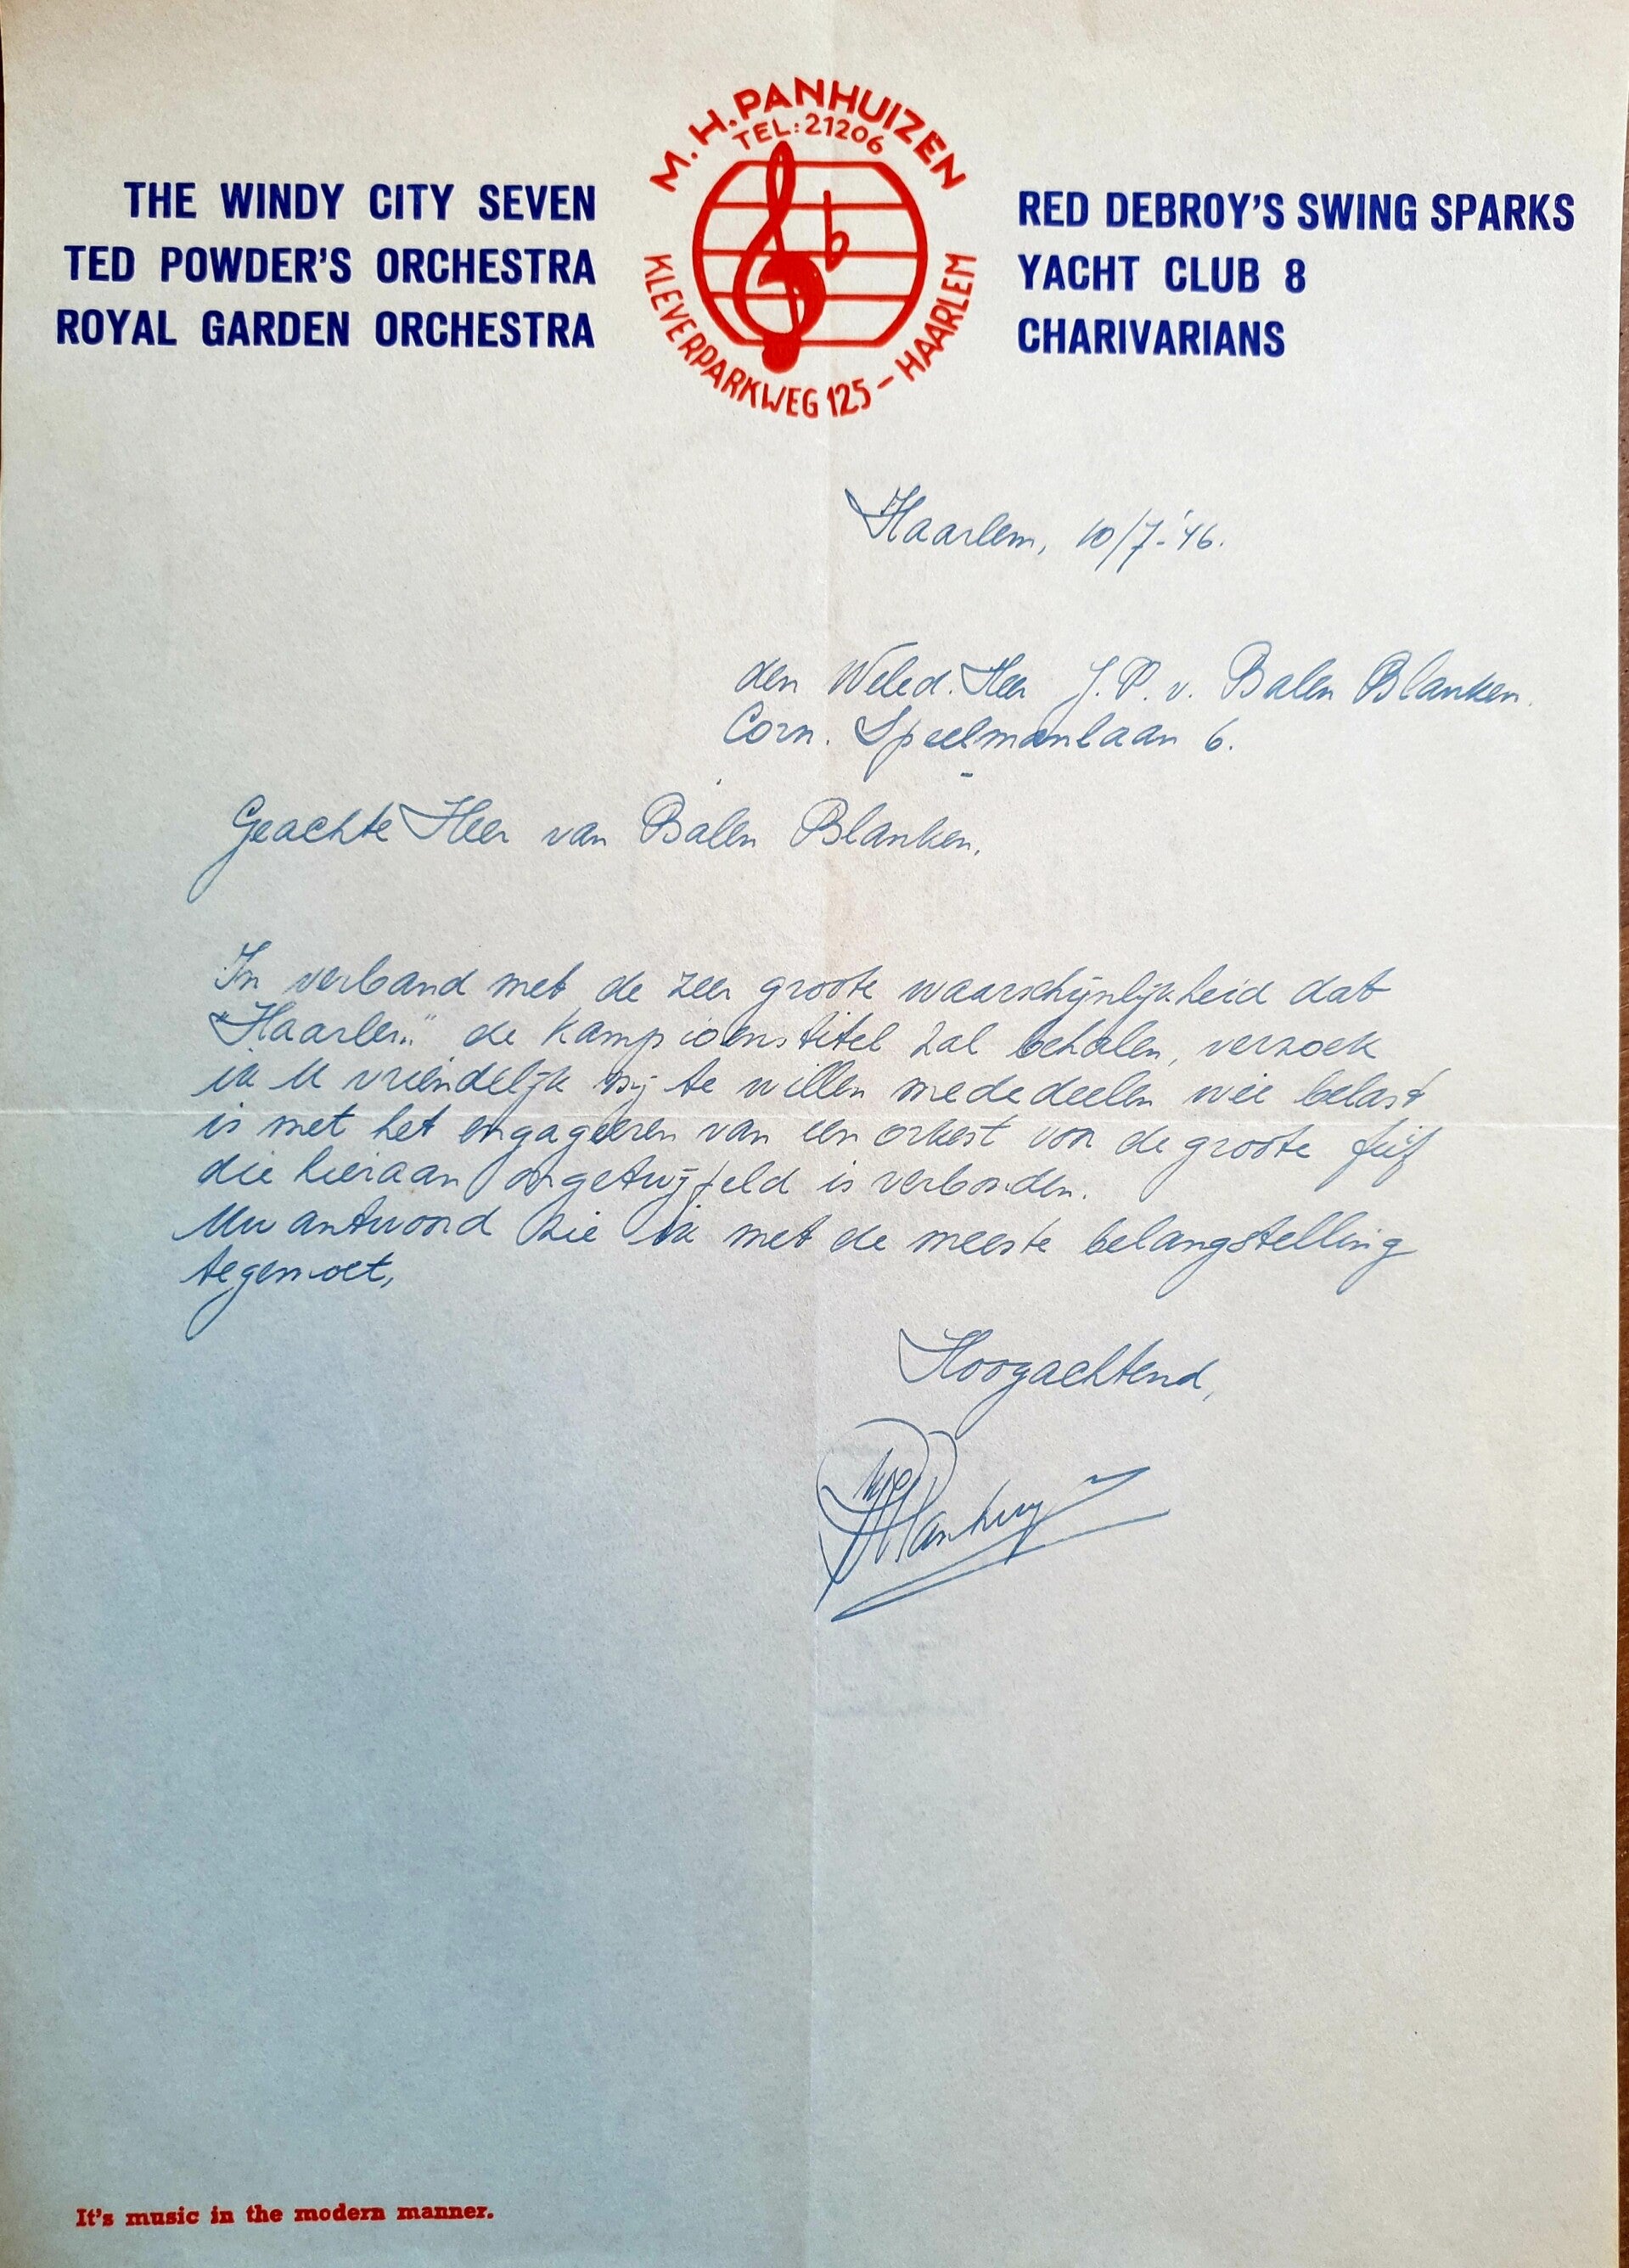 M. H. PANHUIZEN
TEL: 21206
KLEVERPARKWEG 125 - HAARLEM
THE WINDY CITY SEVEN
TED POWDER'S ORCHESTRA
ROYAL GARDEN ORCHESTRA
RED DEBROY'S SWING SPARKS
YACHT CLUB 8
CHARIVARIANS
Haarlem, 10/7-'46.
den Weled. Heer J. P. v. Balen Blanken.
Corn. Speelmanlaan 6.
Geachte Heer van Balen Blanken,
In verband met de zeer groote waarschijnlijkheid dat
"Haarlem" de kampioenstitel zal behalen, verzoek
ik U vriendelijk mij te willen mededeelen wie belast
is met het engageeren van een orkest voor de groote fuif
die hieraan ongetwijfeld is verbonden.
Uw antwoord zie ik met de meeste belangstelling
tegemoet,
Hoogachtend,
It's music in the modern manner.